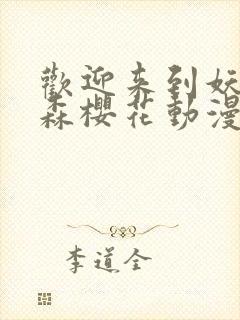 歡迎來到妖
森櫻花動漫
李道全